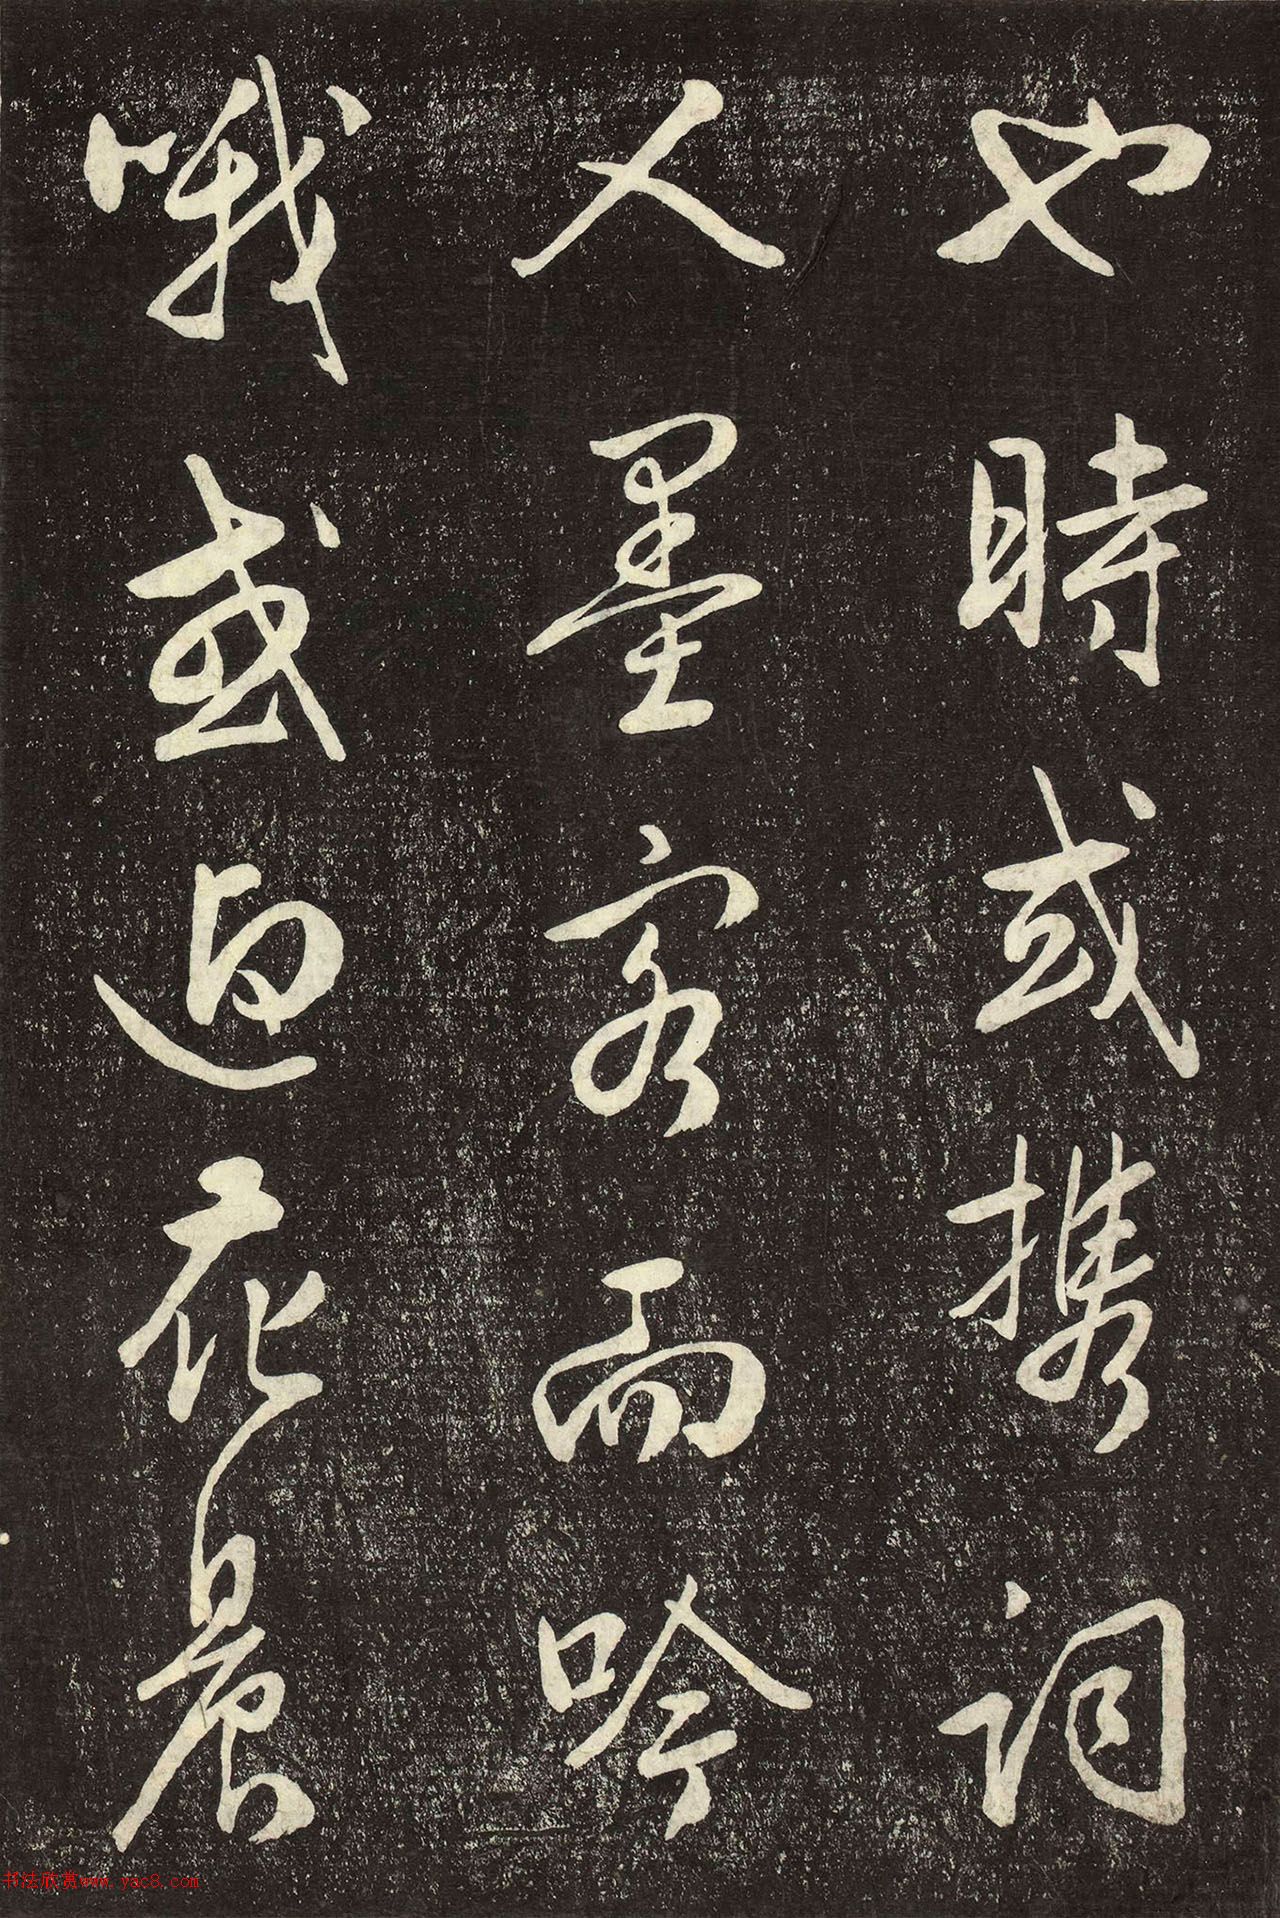 也時或攜詞
人墨客而吟
哦或遇花晨
书法欣赏www.yac8.com